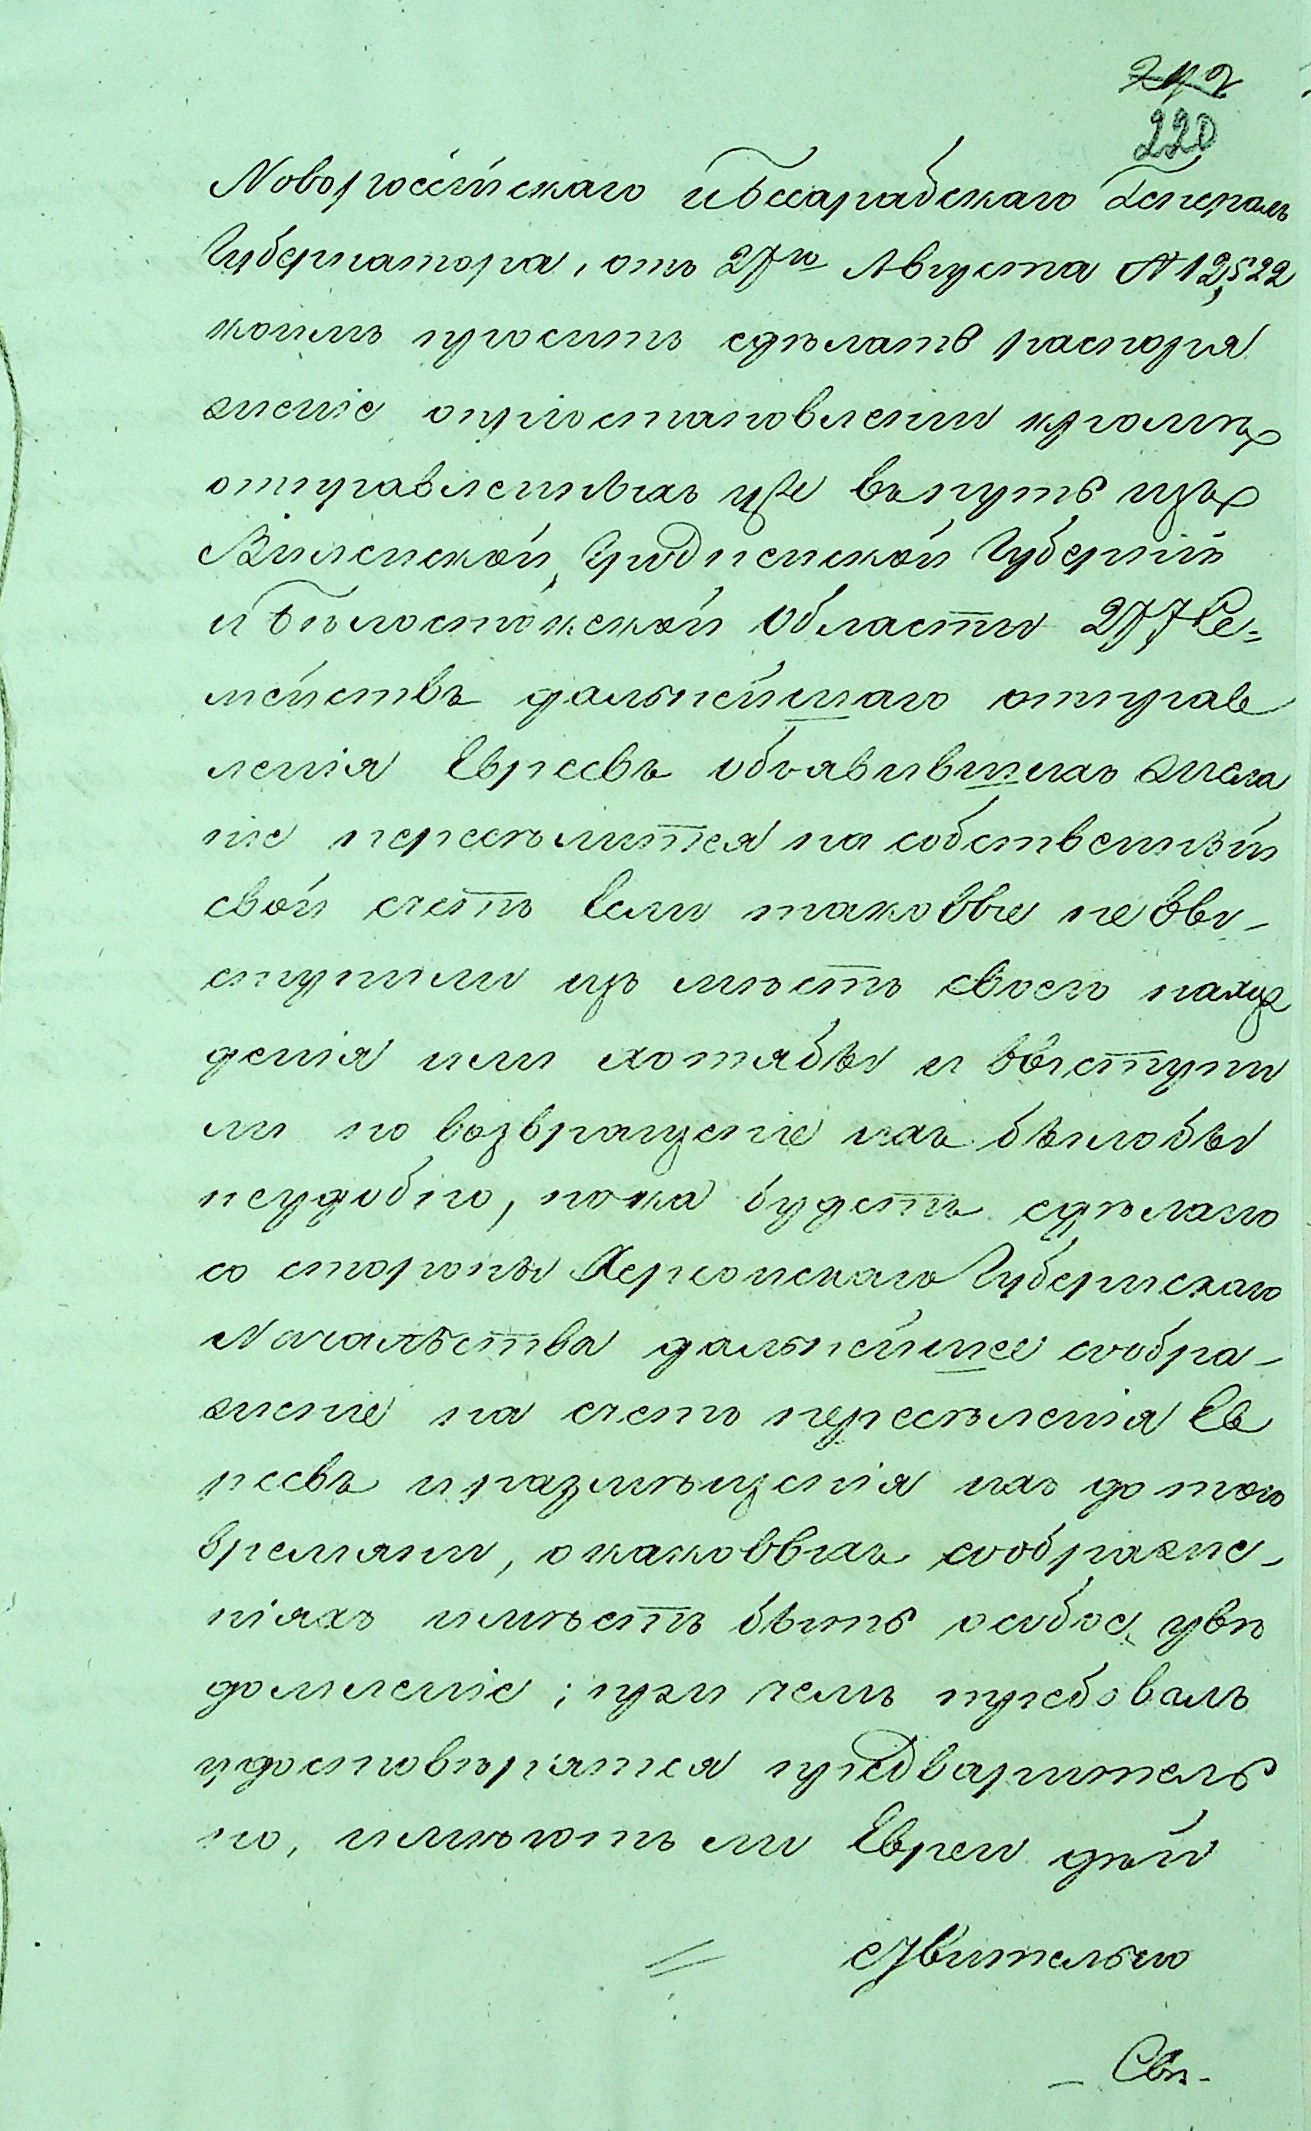 220
Новороссійскаго и Бессарабскаго Генералъ
Губернатора, отъ 27го Августа № 12,522
коимъ проситъ сдѣлать распоря
женіе опріостановленіи кромѣ
отправленныхъ уже въ путь изъ
Виленской, Гродненской Губерній
и Бѣлостокской Области 277 Се=
мействъ дальнейшаго отправ
ленія Евреевъ объявившихъ жела
ніе переселится на собственный
свой счетъ Если таковые не вы-
ступили изъ мѣстъ своего нахож
денія или хотябы и выступи
ли но возвращеніе ихъ былобы
неудобно, пока будетъ сдѣлано
со стороны Херсонскаго Губернскаго
Началства дальнейшее сообра-
женіе на счетъ переселенія Ев
реевъ и размѣщенія ихъ до того
времяни, о каковыхъ соображе-
ніяхъ имѣетъ быть особое увѣ
домленіе; при чемъ требовалъ
удостовѣрятся предваритель
но, имѣютъ ли Евреи дѣй
ствительно
- Сви-